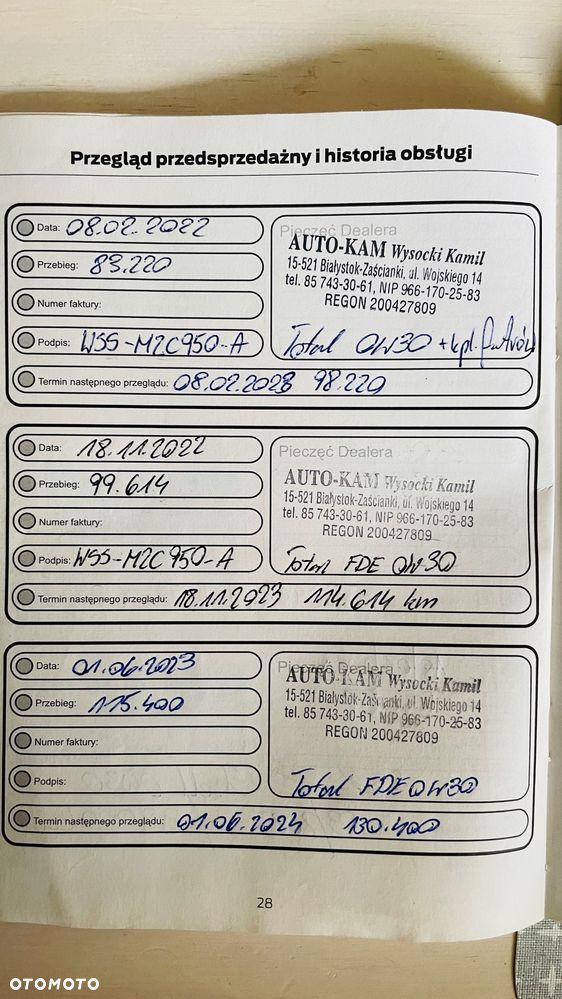 Przegląd przedsprzedażny i historia obsługi
Data: 08.02.2022
Przebieg: 83.220
Numer faktury:
Podpis: WSS-M2C950-A
Pieczęć Dealera
AUTO-KAM Wysocki Kamil
15-521 Białystok-Zaścianki, ul. Wojskiego 14
tel. 85 743-30-61, NIP 966-170-25-83
REGON 200427809
Total 0W30 + kpl.
Termin następnego przeglądu: 08.02.2023 98.220
Data: 18.11.2022
Przebieg: 99.614
Numer faktury:
Podpis: WSS-M2C950-A
Pieczęć Dealera
AUTO-KAM Wysocki Kamil
15-521 Białystok-Zaścianki, ul. Wojskiego 14
tel. 85 743-30-61, NIP 966-170-25-83
REGON 200427809
Total FDE 0W30
Termin następnego przeglądu: 18.11.2023 114.614 km
Data: 01.06.2023
Przebieg: 115.400
Numer faktury:
Podpis:
Pieczęć Dealera
AUTO-KAM Wysocki Kamil
15-521 Białystok-Zaścianki, ul. Wojskiego 14
tel. 85 743-30-61, NIP 966-170-25-83
REGON 200427809
Total FDE 0W30
Termin następnego przeglądu: 01.06.2024 130.400
28
OTOMOTO